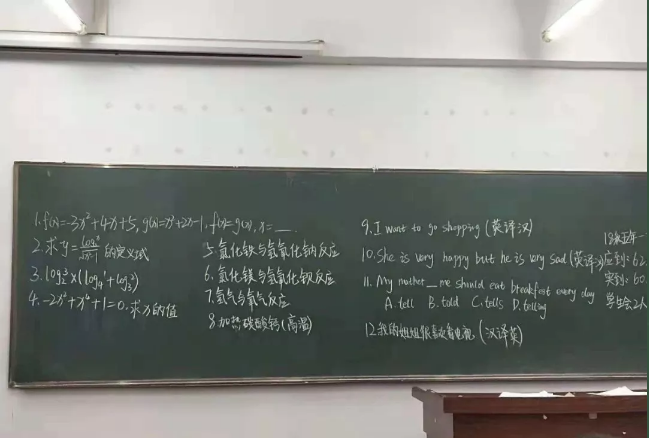 1. f(x)=-3x²+4x+5, g(x)=x²+2x-1, f(x)=g(x), x=___.
2. 求y= 的定义域
3. 
4. -2x²+x⁴+1=0. 求x的值
5. 氯化铁与氢氧化钠反应
6. 氯化镁与氢氧化钡反应
7. 氢气与氧气反应
8. 加热碳酸钙(高温)
9. I want to go shopping (英译汉)
10. She is very happy but he is very sad (英译汉)
11. My mother __ me should eat breakfast every day
A. tell B. told C. tells D. telling
12. 我的姐姐很喜欢看电视 (汉译英)
应到: 62
实到: 60
学生会2人